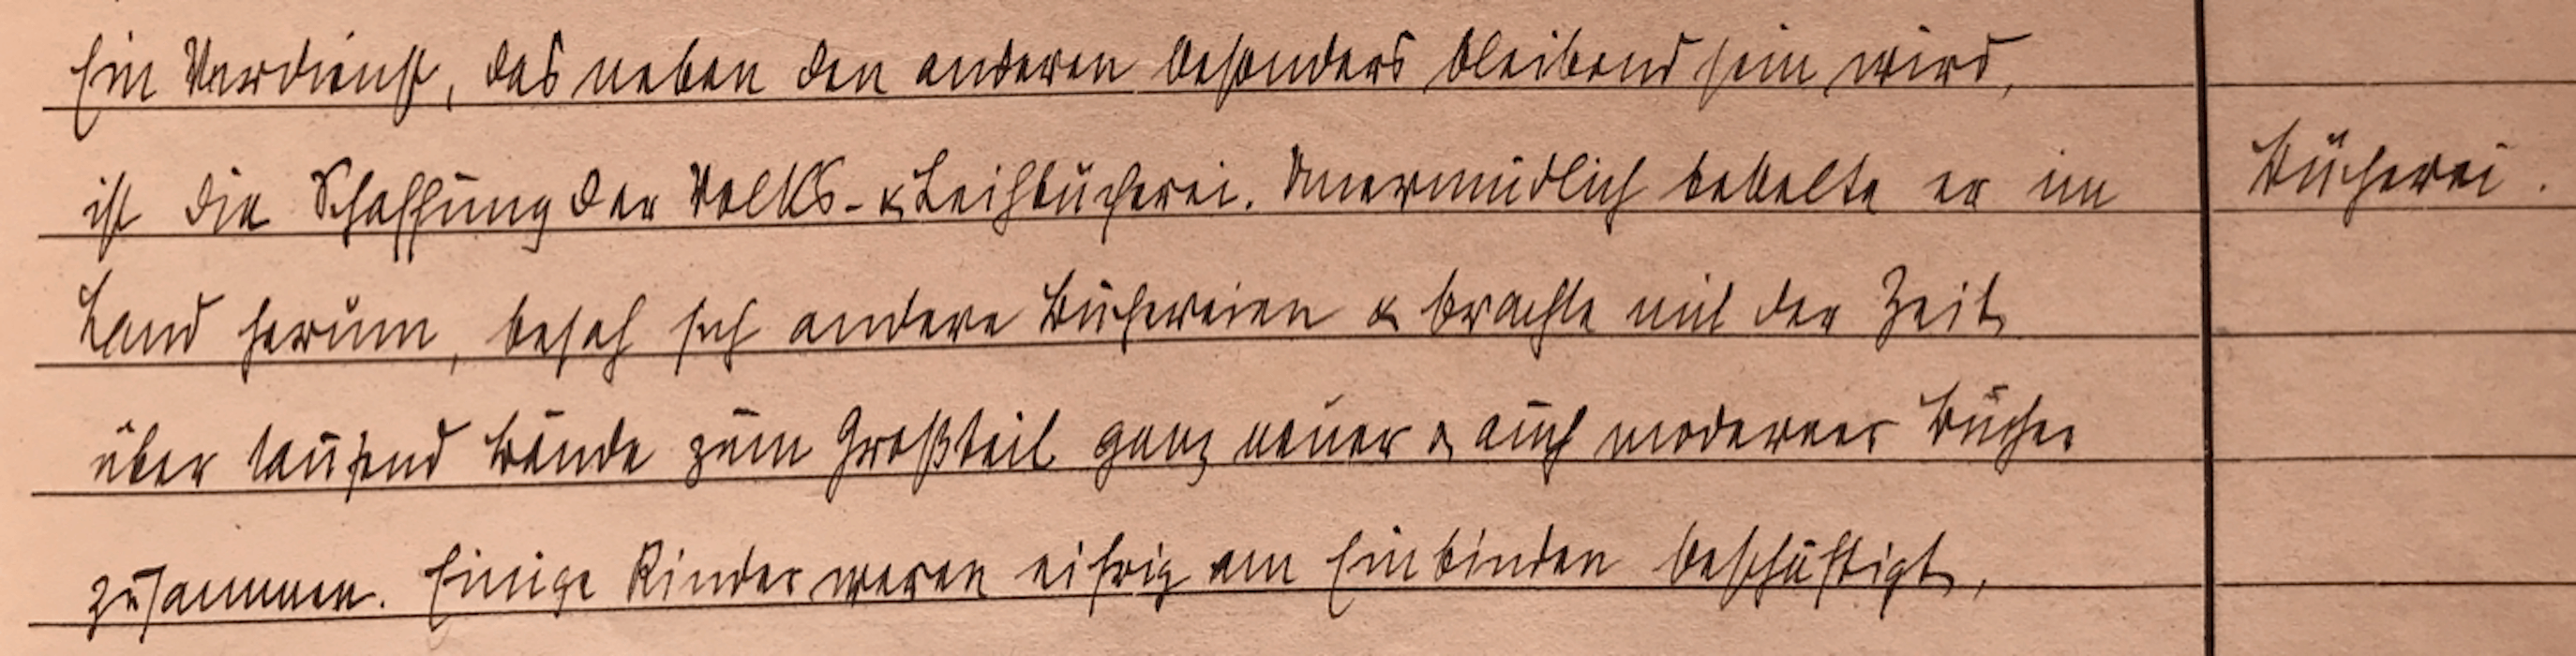 Ein Verdienst, das neben den anderen besonders bleibend sein wird,
ist die Schaffung der Volks- & Leihbücherei. Unermüdlich bettelte er im
Bücherei.
Land herum, besah sich andere Büchereien & brachte mit der Zeit
über tausend Bände zum Großteil ganz neuer & auch moderner Bücher
zusammen. Einige Kinder waren eifrig am Einbinden beschäftigt,